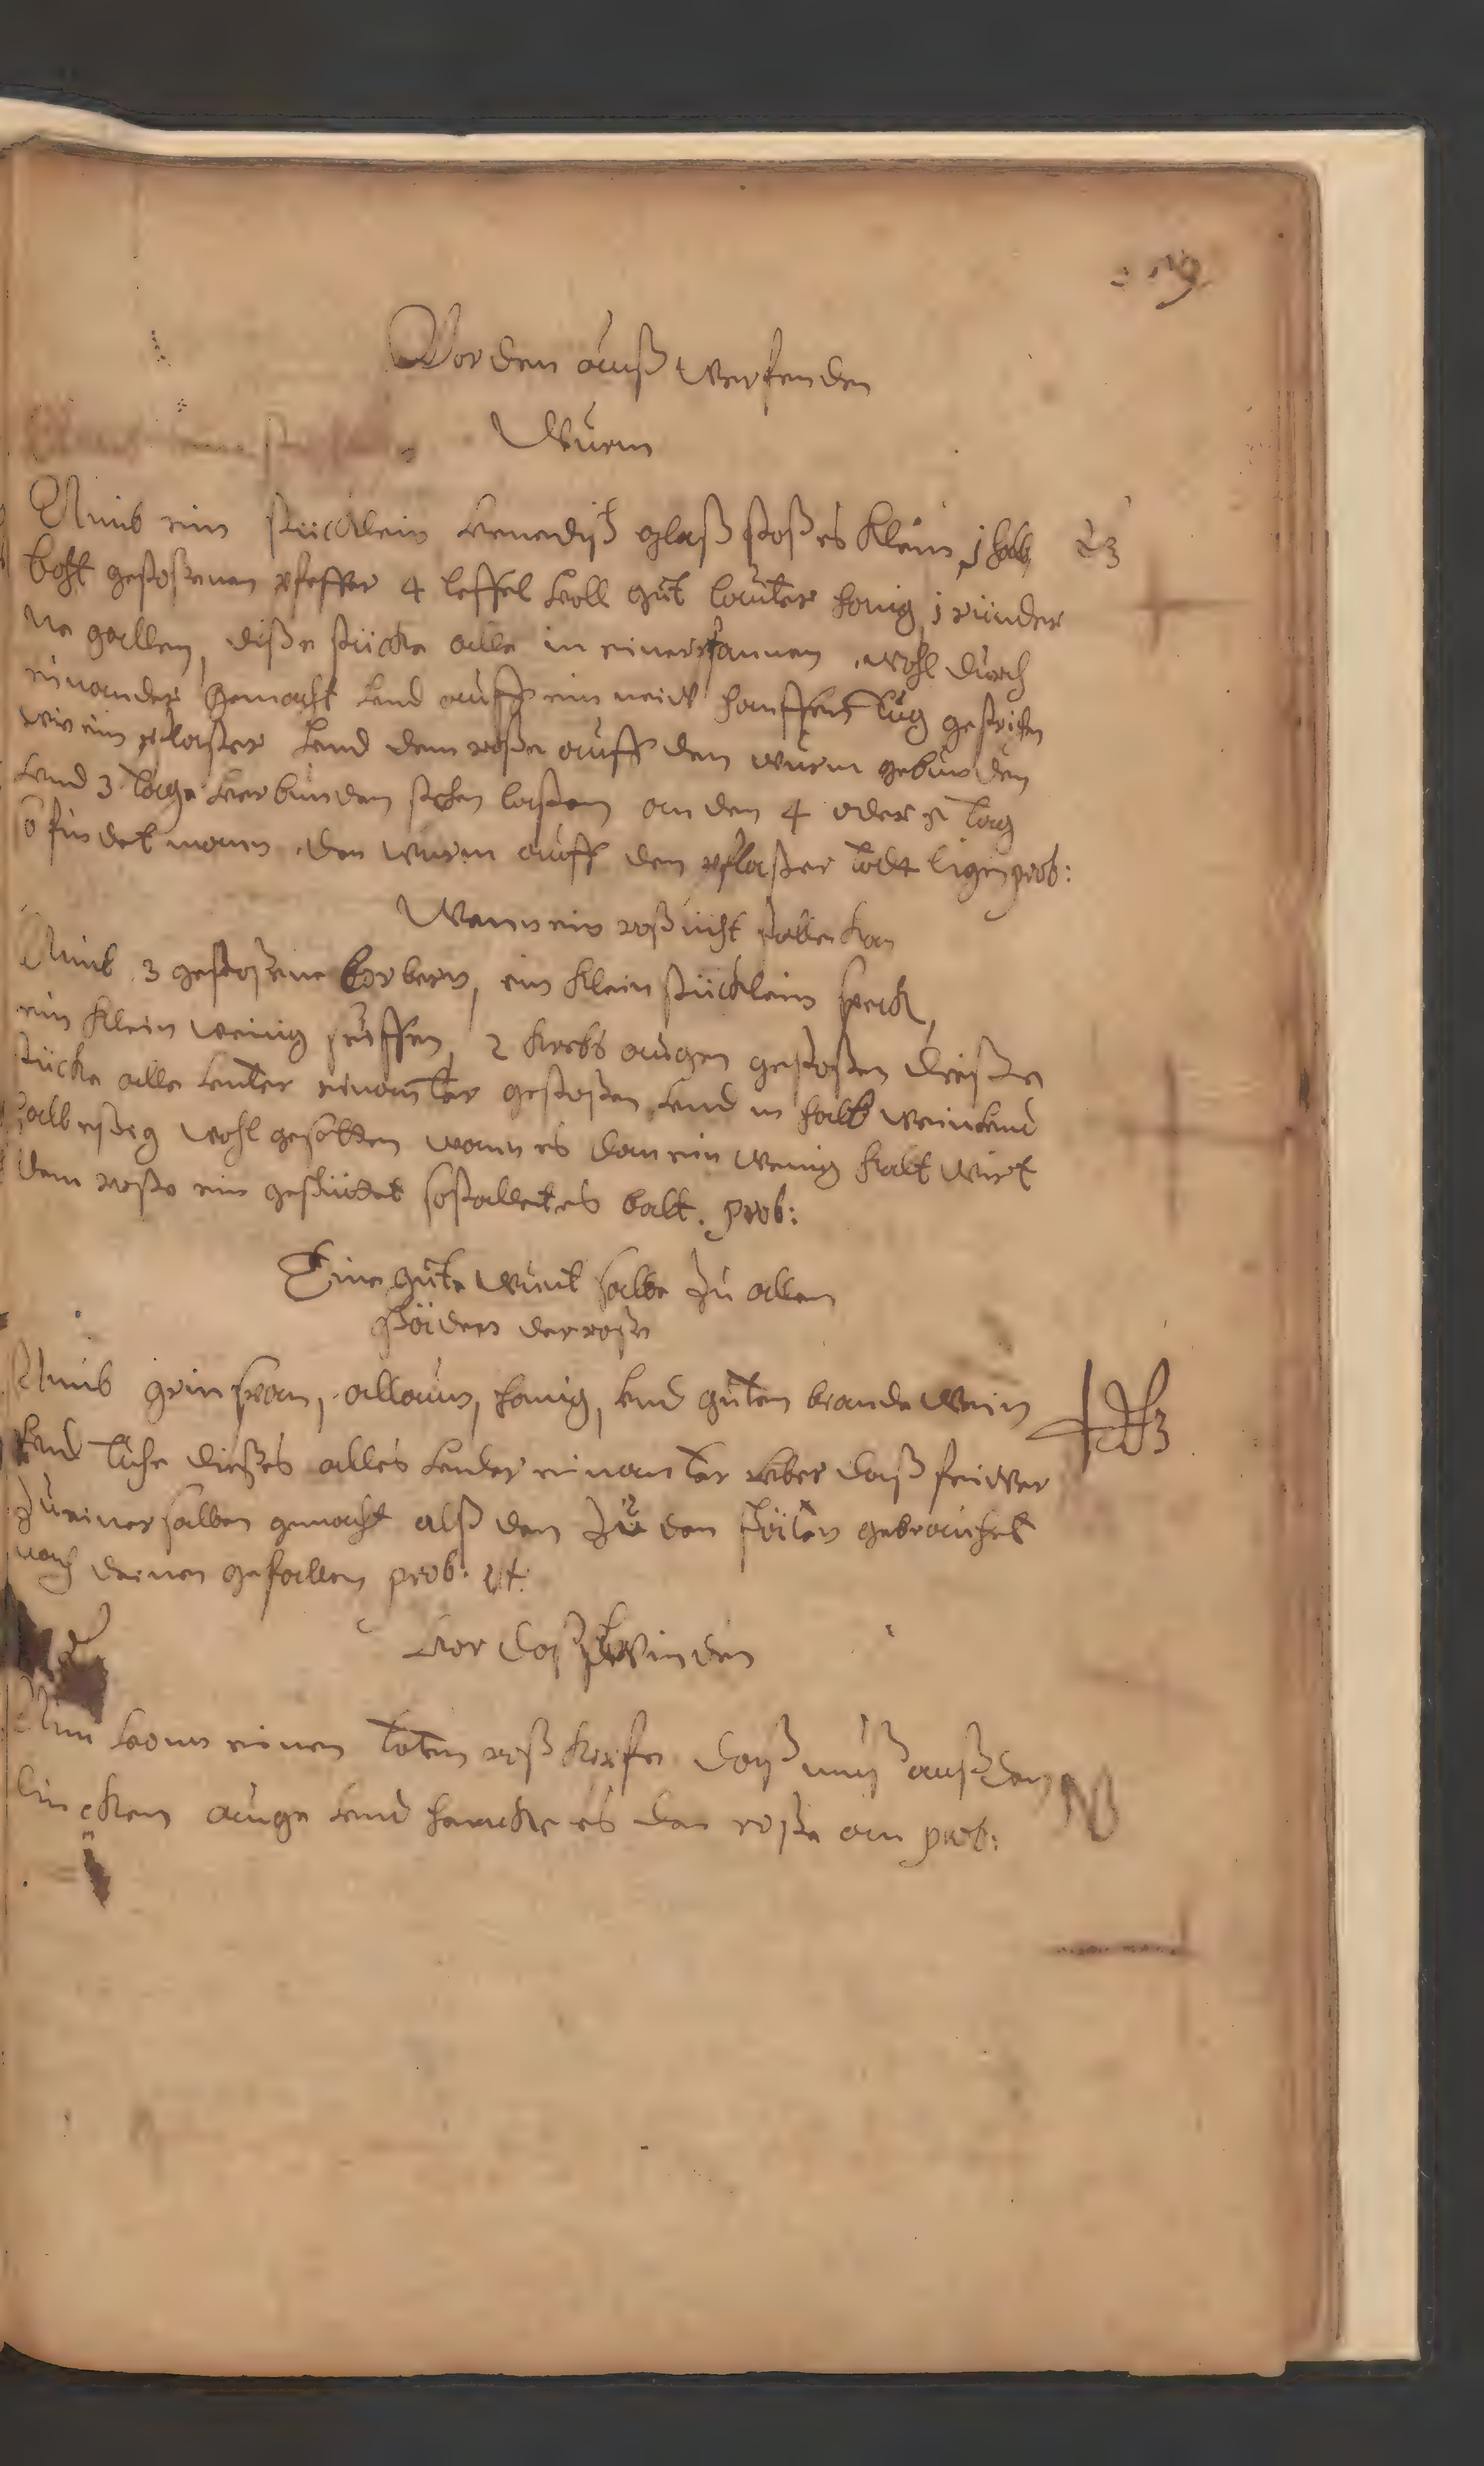 Vor den auß werfenden
Wurm
Nimb ein stücklein Venedisch glaß stoß es klein j halb
loht gestoßenen pfeffer 4 leffel voll gut lauter honig j rinder
ne gallen, diße stücke alle in einer pfannen wohl durch
einander gemacht vnd auff ein neiw hanffens tug gestrichen
wie ein pflaster vnd dem roße auff den wurm gebunden
vnd 3 tage verbunden stehen laßen an den 4 oder 5 tag
so findet mann den wurm auff den pflaster todt ligen prob:
Wann ein roß nicht stallen kan
Nimb 3 gestoßene lorbern, ein klein stücklein speck,
ein klein wenig seiffen, 2 krebs augen gestoßen dieße
stücke alle vnter einanter gestoßen vnd in halb wein vnd
halb eßig wohl gesotten wann es dan ein wenig kalt wirt
dem roße ein geschüttet so stallet es balt. prob:
Eine gute wunt salbe zu allen
schäden der roße
Nimb grinspan, allaun, honig, vnd guten brande wein
vnd dieses alles vnder einanter vber daß feiwer
zu einer salben gemacht alß dan zu den schäden gebrauchet
nach deinen gefallen prob: est
Vor daß schwinden
Nim von einen toten roß kopfe daß auß den
lincken auge vnd hencke es dan roße an prob: